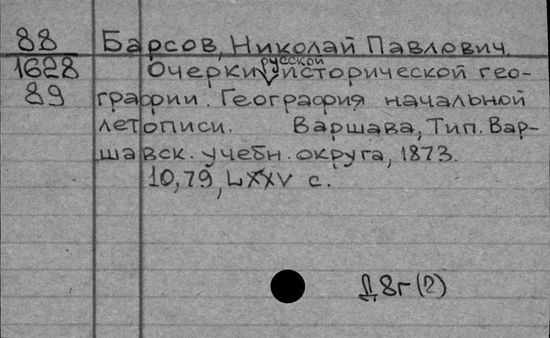 88
1628
89
Барсов, Николай Павлович.
Очерки русской исторической гео-
графии. География начальной
летописи. Варшава, Тип. Вар-
шавск. учебн. округа, 1873.
10, 79, LXXV с.
Д 8г (2)